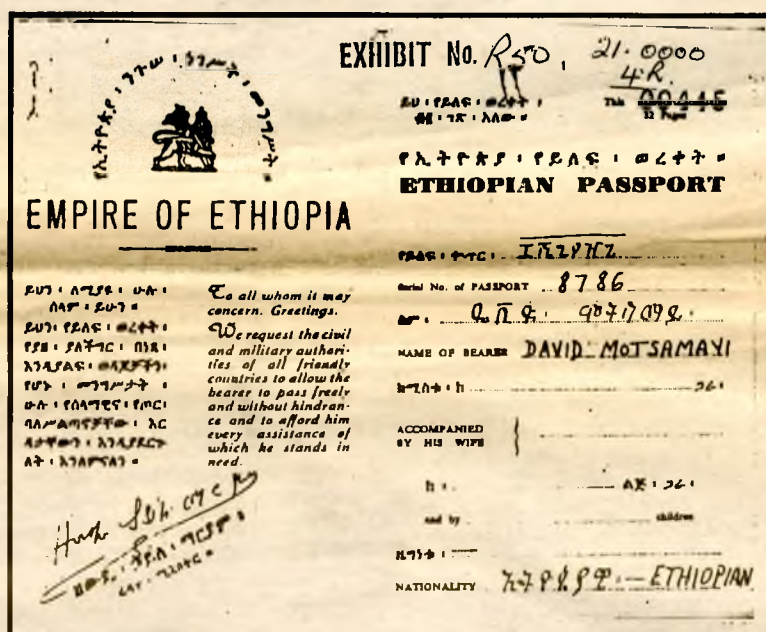 EXHIBIT No. R50,
21.0000
4.R.
የኢትዮጵያ፡ንጉሠ፡ነገሥት፡መንግሥት።
EMPIRE OF ETHIOPIA
ይህን፡ለሚያዩ፡ሁሉ፡
ሰላም፡ይሁን።
ይህን፡የይለፍ፡ወረቀት፡
የያዘ፡ያለችግር፡በነጻ፡
እንዲያልፍ፡ወዳጆቻችን፡
የሆኑ፡መንግሥታት፡
ሁሉ፡የሰላማዊና፡የጦር፡
ባለሥልጣኖቻቸው፡እር
ዳታቸውን፡እንዲያደርጉ
ለት፡እንለምናለን።
To all whom it may
concern. Greetings.
We request the civil
and military authori-
ties of all friendly
countries to allow the
bearer to pass freely
and without hindran-
ce and to afford him
every assistance of
which he stands in
need.
ይህ፡የይለፍ፡ወረቀት፡
፴፪፡ገጽ፡አለው።
This
32 Pages
የኢትዮጵያ፡የይለፍ፡ወረቀት።
ETHIOPIAN PASSPORT
የይለፍ፡ቁጥር፡
Serial No. of PASSPORT 8786
ስም፡ ዴቪድ
NAME OF BEARER DAVID MOTSAMAYI
ከሚስቱ፡ከ ጋራ፡
ACCOMPANIED
BY HIS WIFE
ከ፡ ልጆ፡ጋራ፡
and by children
ዜግነቱ፡
NATIONALITY ETHIOPIAN